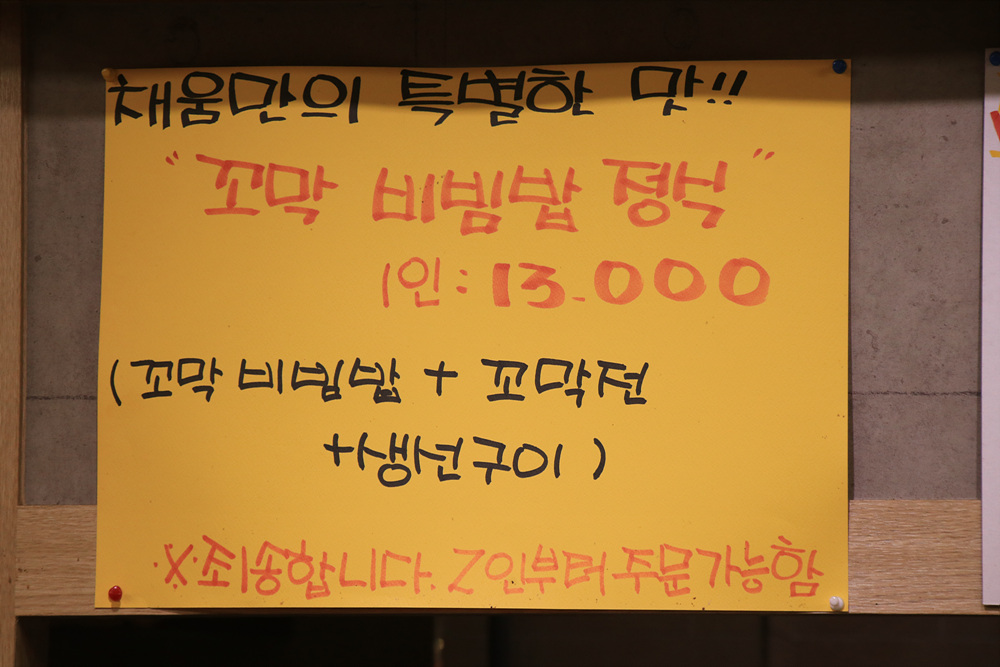 채움만의 특별한 맛!!
"꼬막 비빔밥 정식"
1인: 13.000
(꼬막 비빔밥 + 꼬막전
+생선구이)
※죄송합니다. 2인부터 주문가능함